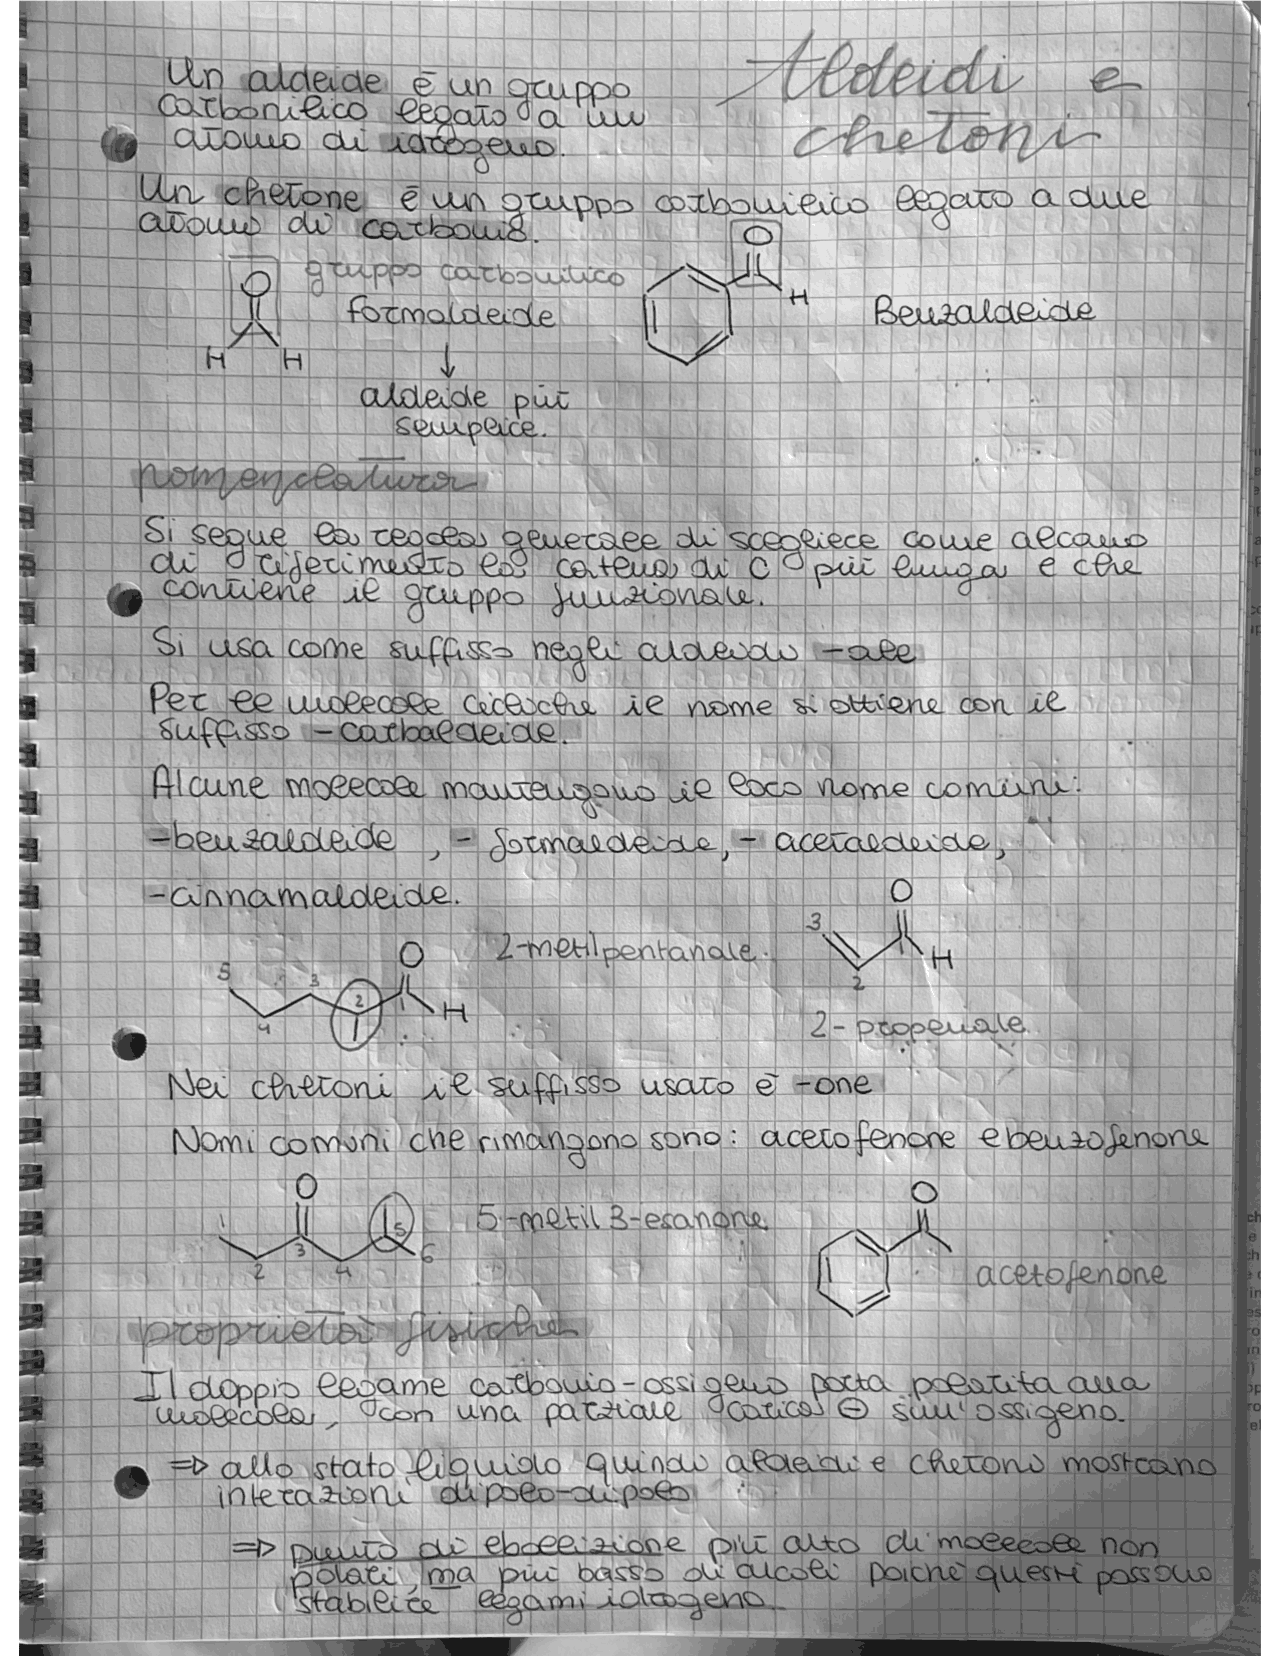 Aldeidi e
chetoni
Un aldeide è un gruppo
carbonilico legato a un
atomo di idrogeno.
Un chetone è un gruppo carbonilico legato a due
atomi di carbonio.
gruppo carbonilico
O
H H
formaldeide
↓
aldeide più
semplice.
O
H
Benzaldeide
nomenclatura
Si segue la regola generale di scegliere come alcano
di riferimento la catena di C più lunga e che
contiene il gruppo funzionale.
Si usa come suffisso negli aldeidi -ale
Per le molecole cicliche il nome si ottiene con il
suffisso -carbaldeide.
Alcune molecole mantengono il loro nome comuni:
-benzaldeide, - formaldeide, - acetaldeide,
-cinnamaldeide.
5 4 3 2 O H
2-metilpentanale.
3 2 O H
2-propenale
Nei chetoni il suffisso usato è -one
Nomi comuni che rimangono sono: acetofenone e benzofenone
1 2 3 4 5 6 O
5-metil 3-esanone
O
acetofenone
proprietà fisiche
Il doppio legame carbonio-ossigeno porta polarità alla
molecola, con una parziale carica ⊖ sull'ossigeno.
⇒ allo stato liquido quindi aldeidi e chetoni mostrano
interazioni dipolo-dipolo
⇒ punto di ebollizione più alto di molecole non
polari, ma più basso di alcoli poiché questi possono
stabilire legami idrogeno.